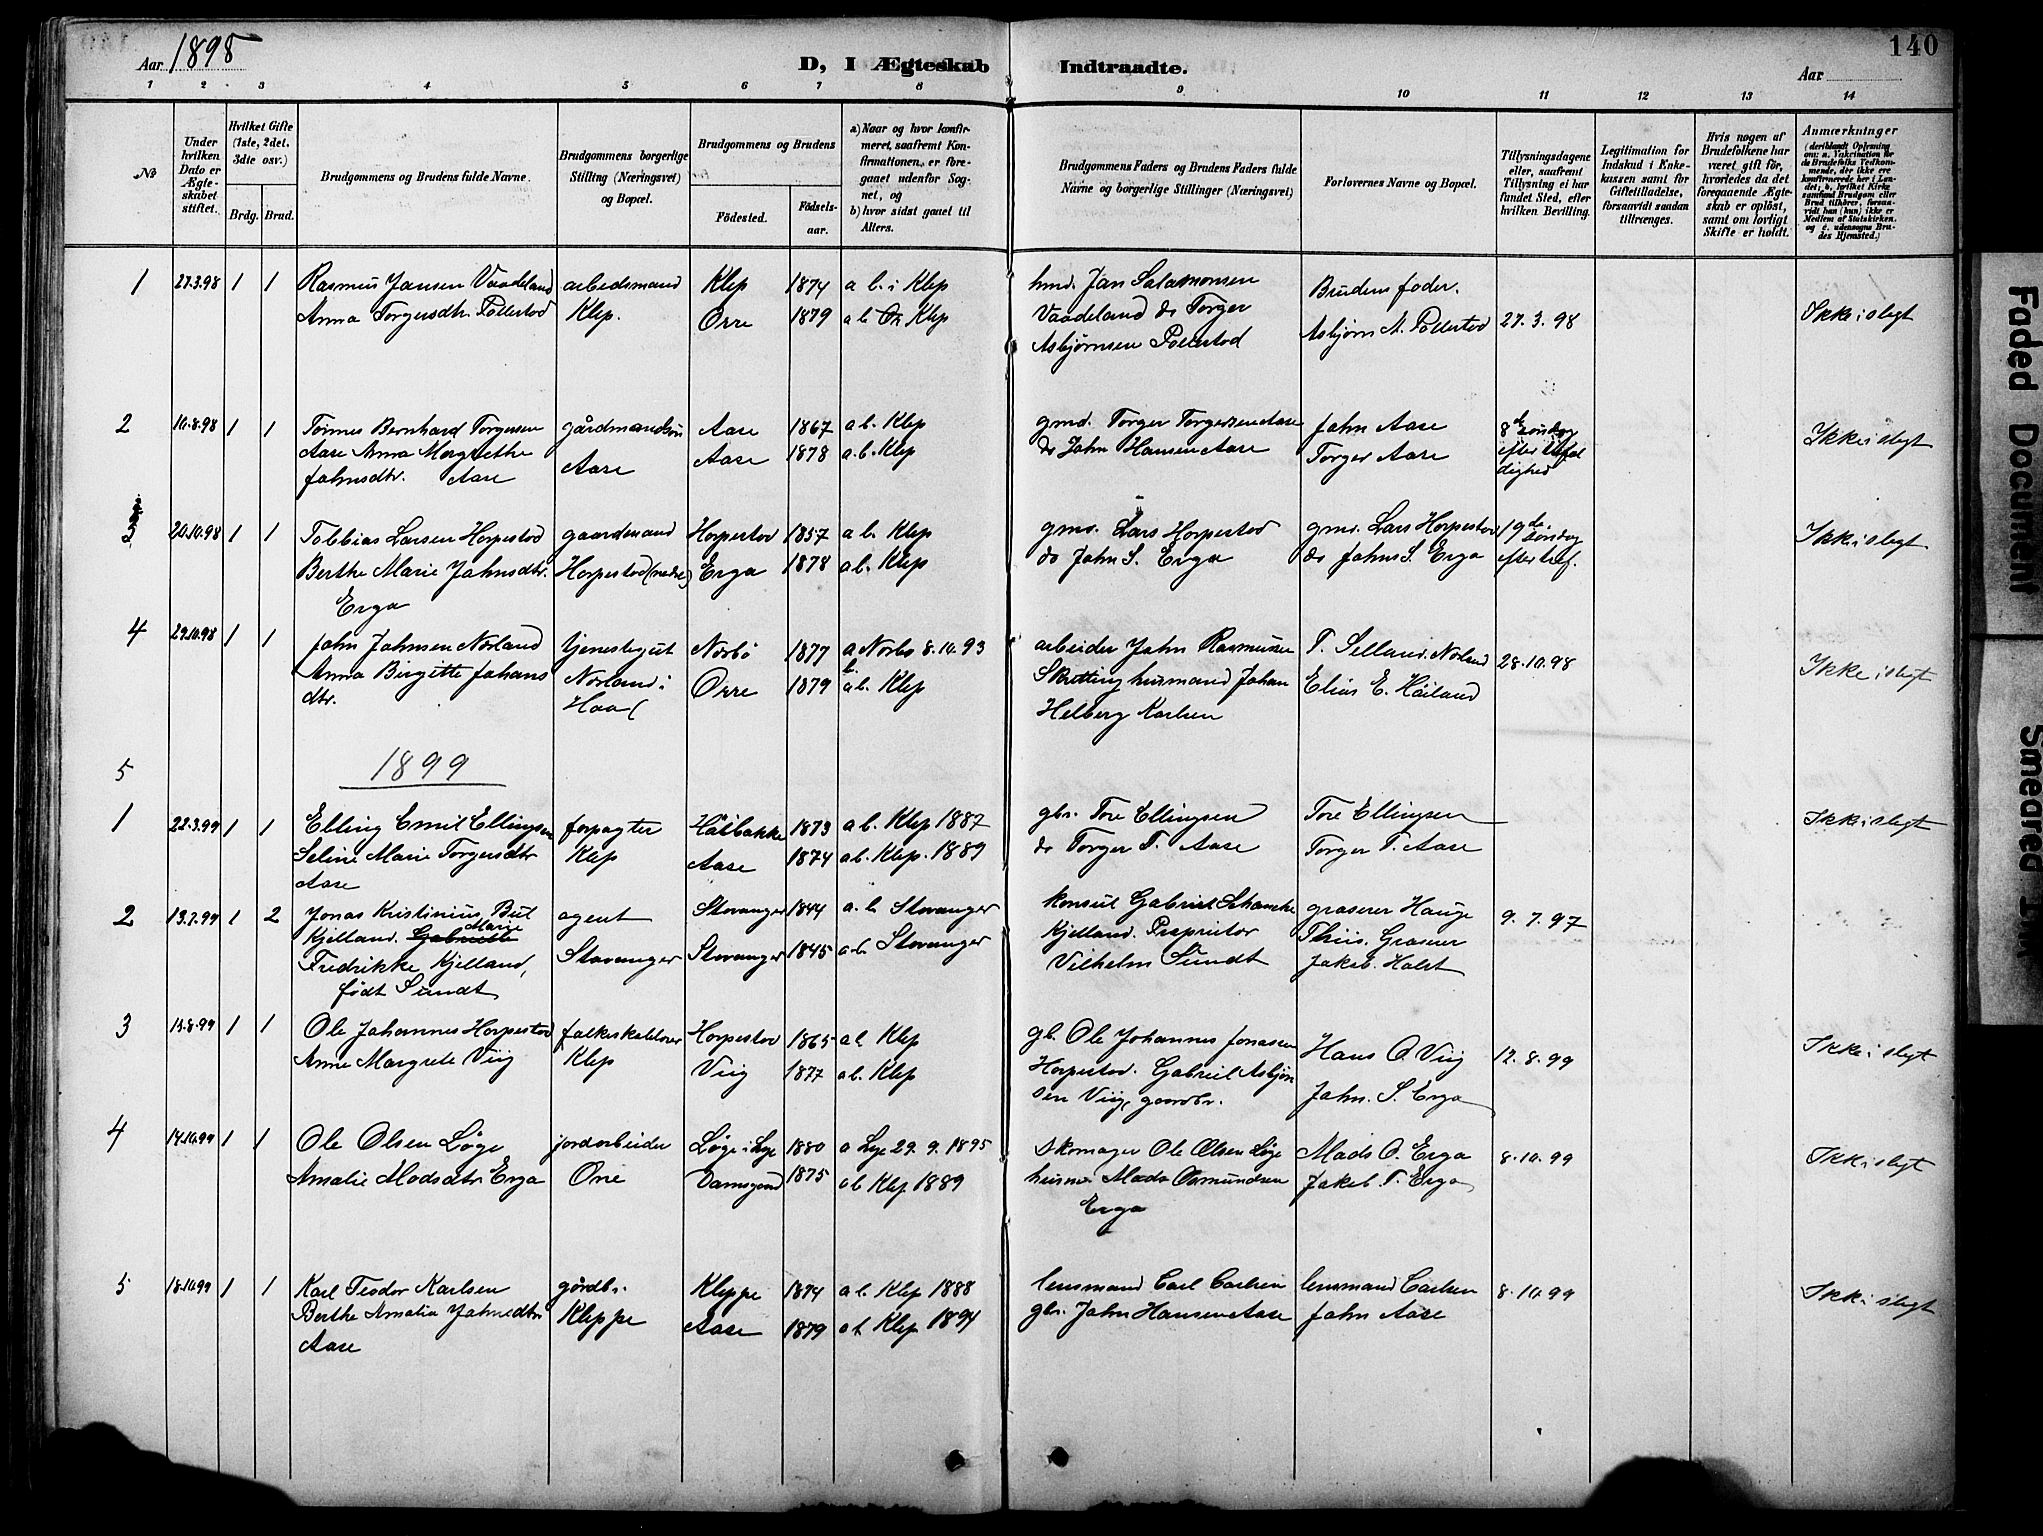 Aar 1898
D, I Ægteskab Indtraadte.
Aar
140
1 2 3 4 5 6 7 8 9 10 11 12 13 14
No
Under hvilken Dato er Ægteskabet stiftet.
Hvilket Gifte (1ste, 2det, 3die osv.)
Brdg. Brud.
Brudgommens og Brudens fulde Navne.
Brudgommens borgerlige Stilling (Næringsvei) og Bopæl.
Brudgommens og Brudens
Fødested.
Fødselsaar.
a) Naar og hvor konfirmeret, saafremt Konfirmationen er foregaaet udenfor Sognet, og
b) hvor sidst gaaet til Alters.
Brudgommens Faders og Brudens Faders fulde Navne og borgerlige Stillinger (Næringsvei)
Forlovernes Navne og Bopæl.
Tillysningsdagene eller, saafremt Tillysning ei har fundet Sted, efter hvilken Bevilling.
Legitimation for Indskud i Enkekassen samt for Giftetilladelse, forsaavidt saadan tiltrænges.
Hvis nogen af Brudefolkene har været gift før, hvorledes da det foregaaende Ægteskab er opløst, samt om lovligt Skifte er holdt.
Anmærkninger
1 27.3.98 1 1 Rasmus Jansen Vaadeland arbeidsmand Klep 1874 a b. i Klep hmd. Jan Salamonsen Brudens fader.
Anna Torgersdtr. Pollestad Klep. Orre 1879 a b Klep Vaadeland do Torger Asbjørn A. Pollestad 27.3.98 Ikke i slegt
Asbjørnsen Pollestad
2 10.8.98 1 1 Tønnes Bernhard Torgersen gårdmandsøn Aase 1867 a b. Klep gmd. Torger Torgersen Aase John Aase 8de søndag
Aase Anna Margrethe Aase Aase 1878 a. b. Klep do John Hansen Aase Torger Aase efter trefol Ikke i slegt
Johnsdtr. Aase dighed
3 20.10.98 1 1 Tobbias Larsen Horpestad gaardmand Horpestad 1857 a b. Klep gmd. Lars Horpestad gmd. Lars Horpestad 19de søndag Ikke i slegt
Berthe Marie Johnsdtr. Horpestad (nedre) Erga 1878 a b. Klep do John S. Erga do John S. Erga efter tref.
Erga
4 29.10.98 1 1 John Johnsen Norland tjenestegut Nærbø 1877 a Nærbø 8.10.93 arbeider John Rasmussen T. Selland. Norland 28.10.98 Ikke i slegt
Anna Birgitte Johans Norland i Orre 1879 a b. Klep Skretting husmand Johan Elias E. Høiland
dtr. Haa Helberg Karlsen
5
1899
1 22.3.99 1 1 Elling Emil Ellingsen forpagter Håbakke 1873 a b. Klep 1887 gbr. Tore Ellingsen Tore Ellingsen Ikke i slegt
Seline Marie Torgersdtr Klep Aase 1874 a b. Klep. 1889 do Torger T. Aase Torger T. Aase
Aase
2 13.7.99 1 2 Jonas Kristinius Bul agent Stavanger 1844 a. b Stavanger konsul Gabriel Schancke grosserer Hauge 9.7.97
Kjelland. Marie Stavanger Stavanger 1845 a b Stavanger Kjelland. Proprietor Thiis. Groserer
Fredrikke Kjelland, Vilhelm Sundt Jakob Holst
født Sundt
3 13.8.99 1 1 Ole Johannes Horpestad Horpestad 1865 a b Klep gb. Ole Johannes Jonassen Hans O. Viig 12.8.99 Ikke i slegt
Anne Margrete Viig Klep Viig 1877 a b. Klep Horpestad. Gabriel Asbjørn John. S. Erga
sen Viig, gaardbr.
4 14.10.99 1 1 Ole Olsen Løge jordarbeider Løge i Lye 1880 a Lye 29.9.1895 skomager Ole Olsen Løge Mads O. Erga 8.10.99 Ikke i slegt
Amalie Madsdtr Erga Orre Damsgaard 1875 a b Klep 1889 husmd Mads Osmundsen Jakob T. Erga
Erga
5 18.10.99 1 1 Karl Teodor Karlsen gårdbr. Kleppe 1874 a b Klep 1888 lensmand Carl Carlsen lensmand Carlsen 8.10.99 Ikke i slegt
Berthe Amalia Johnsdtr Kleppe Aase 1879 a b Klep 1894 gbr. John Hansen Aase John Aase
Aase
Faded Document
Smeared Ink